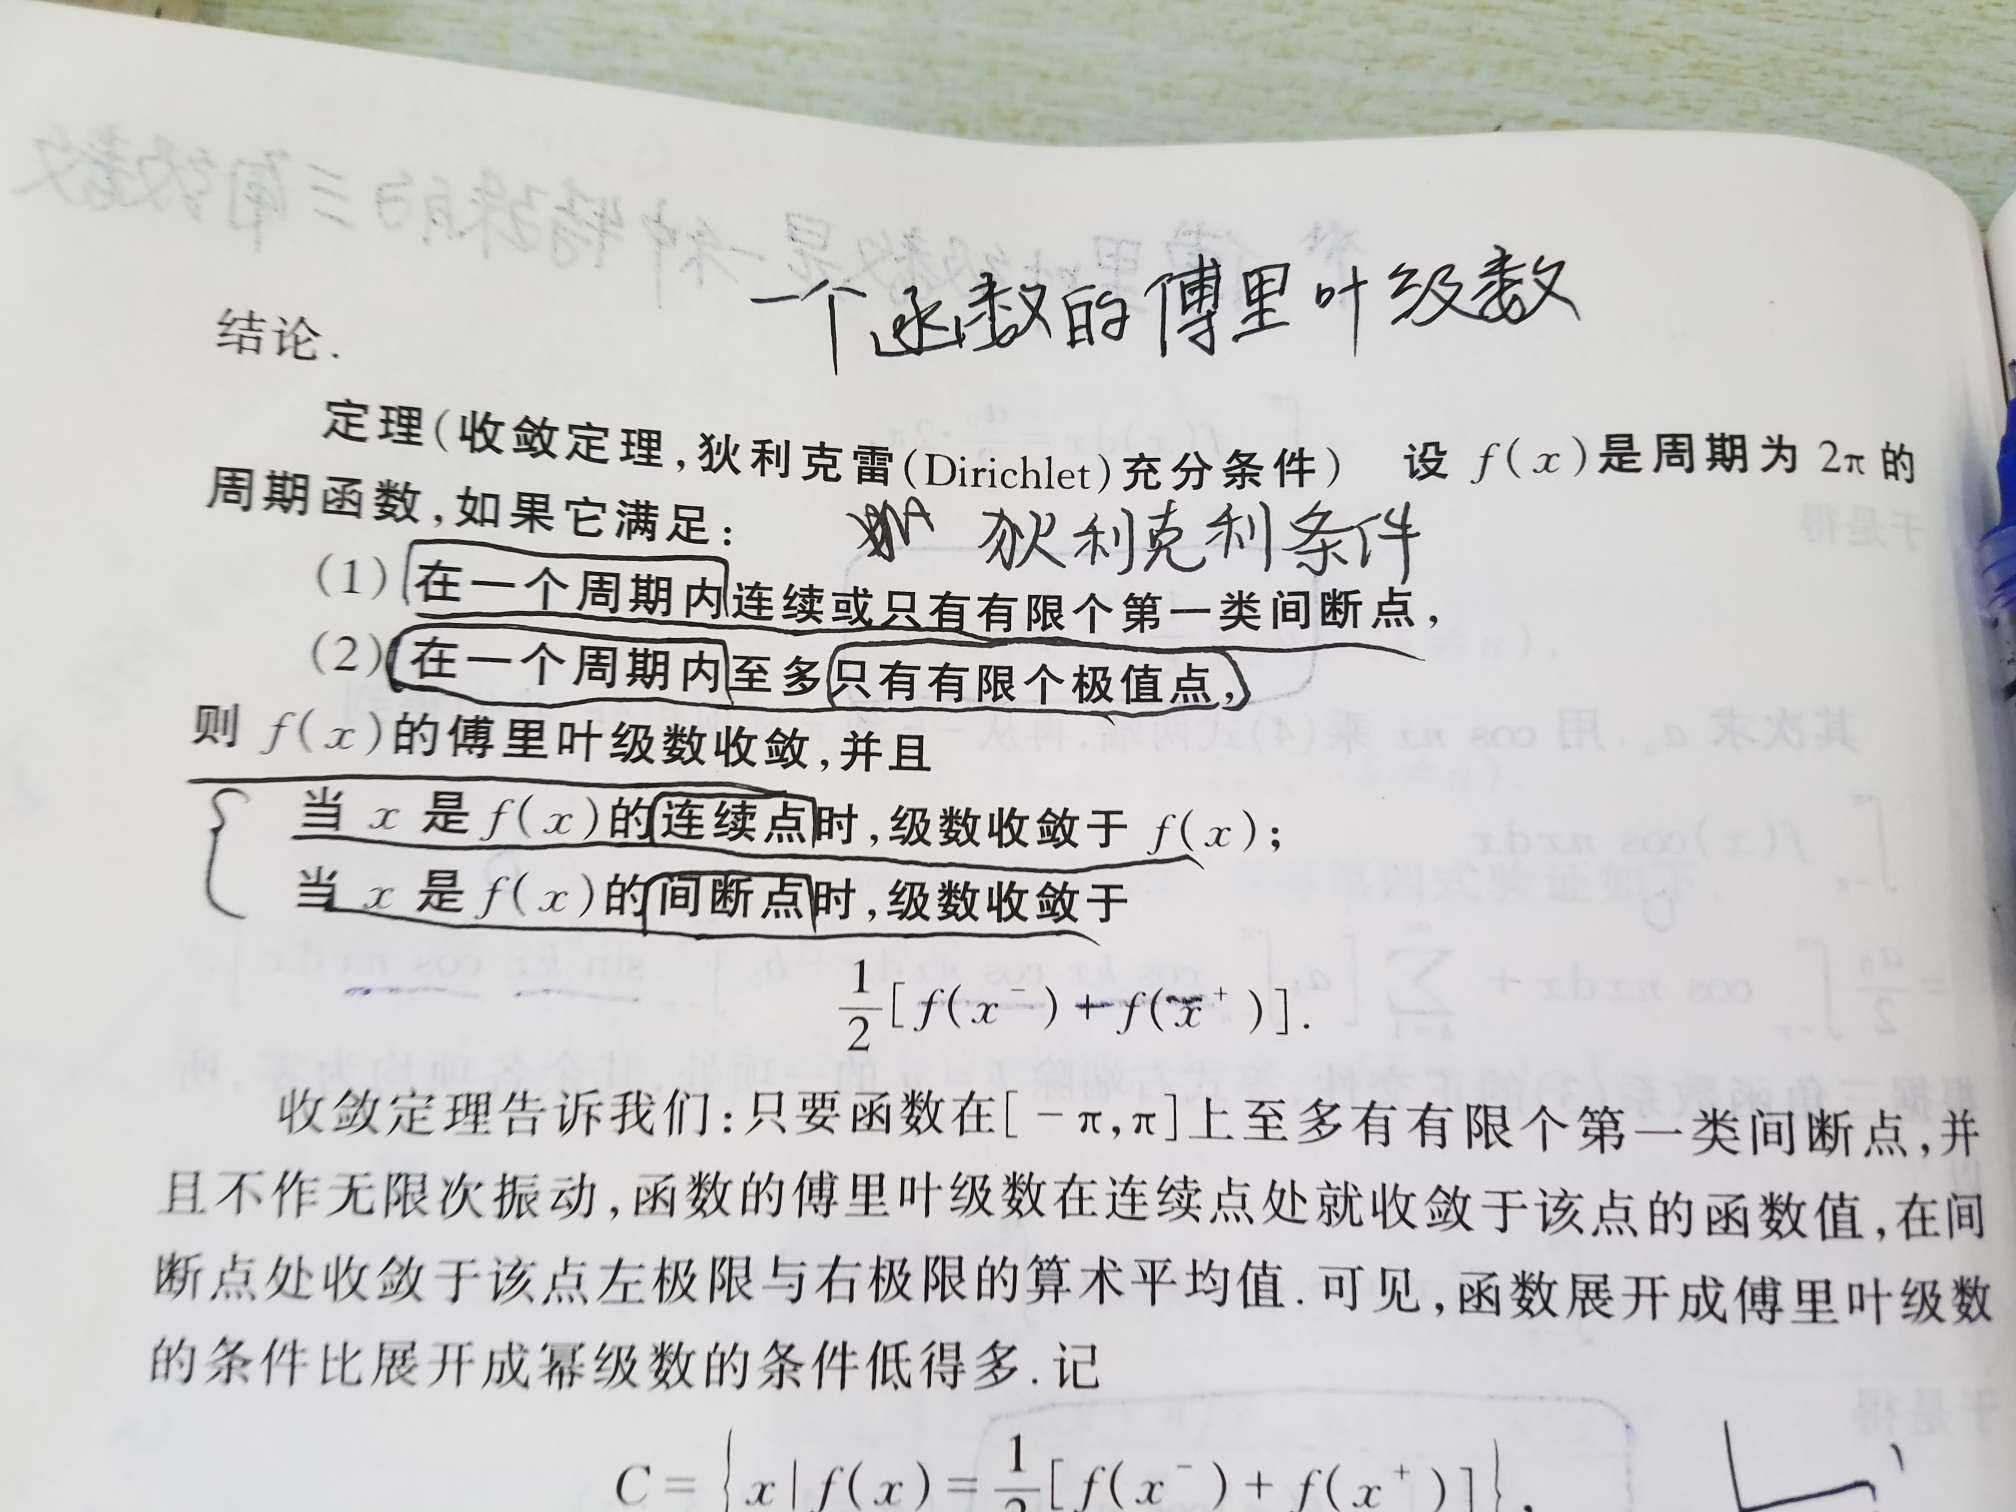 一个函数的傅里叶级数
结论.
定理(收敛定理,狄利克雷(Dirichlet)充分条件) 设 f(x)是周期为 2π 的
周期函数,如果它满足:
狄利克利条件
(1) 在一个周期内连续或只有有限个第一类间断点,
(2) 在一个周期内至多只有有限个极值点,
则 f(x)的傅里叶级数收敛,并且
当 x 是 f(x)的连续点时,级数收敛于 f(x);
当 x 是 f(x)的间断点时,级数收敛于
1/2[f(x⁻)+f(x⁺)].
收敛定理告诉我们:只要函数在[-π,π]上至多有有限个第一类间断点,并
且不作无限次振动,函数的傅里叶级数在连续点处就收敛于该点的函数值,在间
断点处收敛于该点左极限与右极限的算术平均值.可见,函数展开成傅里叶级数
的条件比展开成幂级数的条件低得多.记
C={x|f(x)=1/2[f(x⁻)+f(x⁺)]},